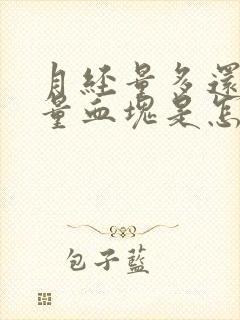 月經量多還
量血塊是怎
包子藍